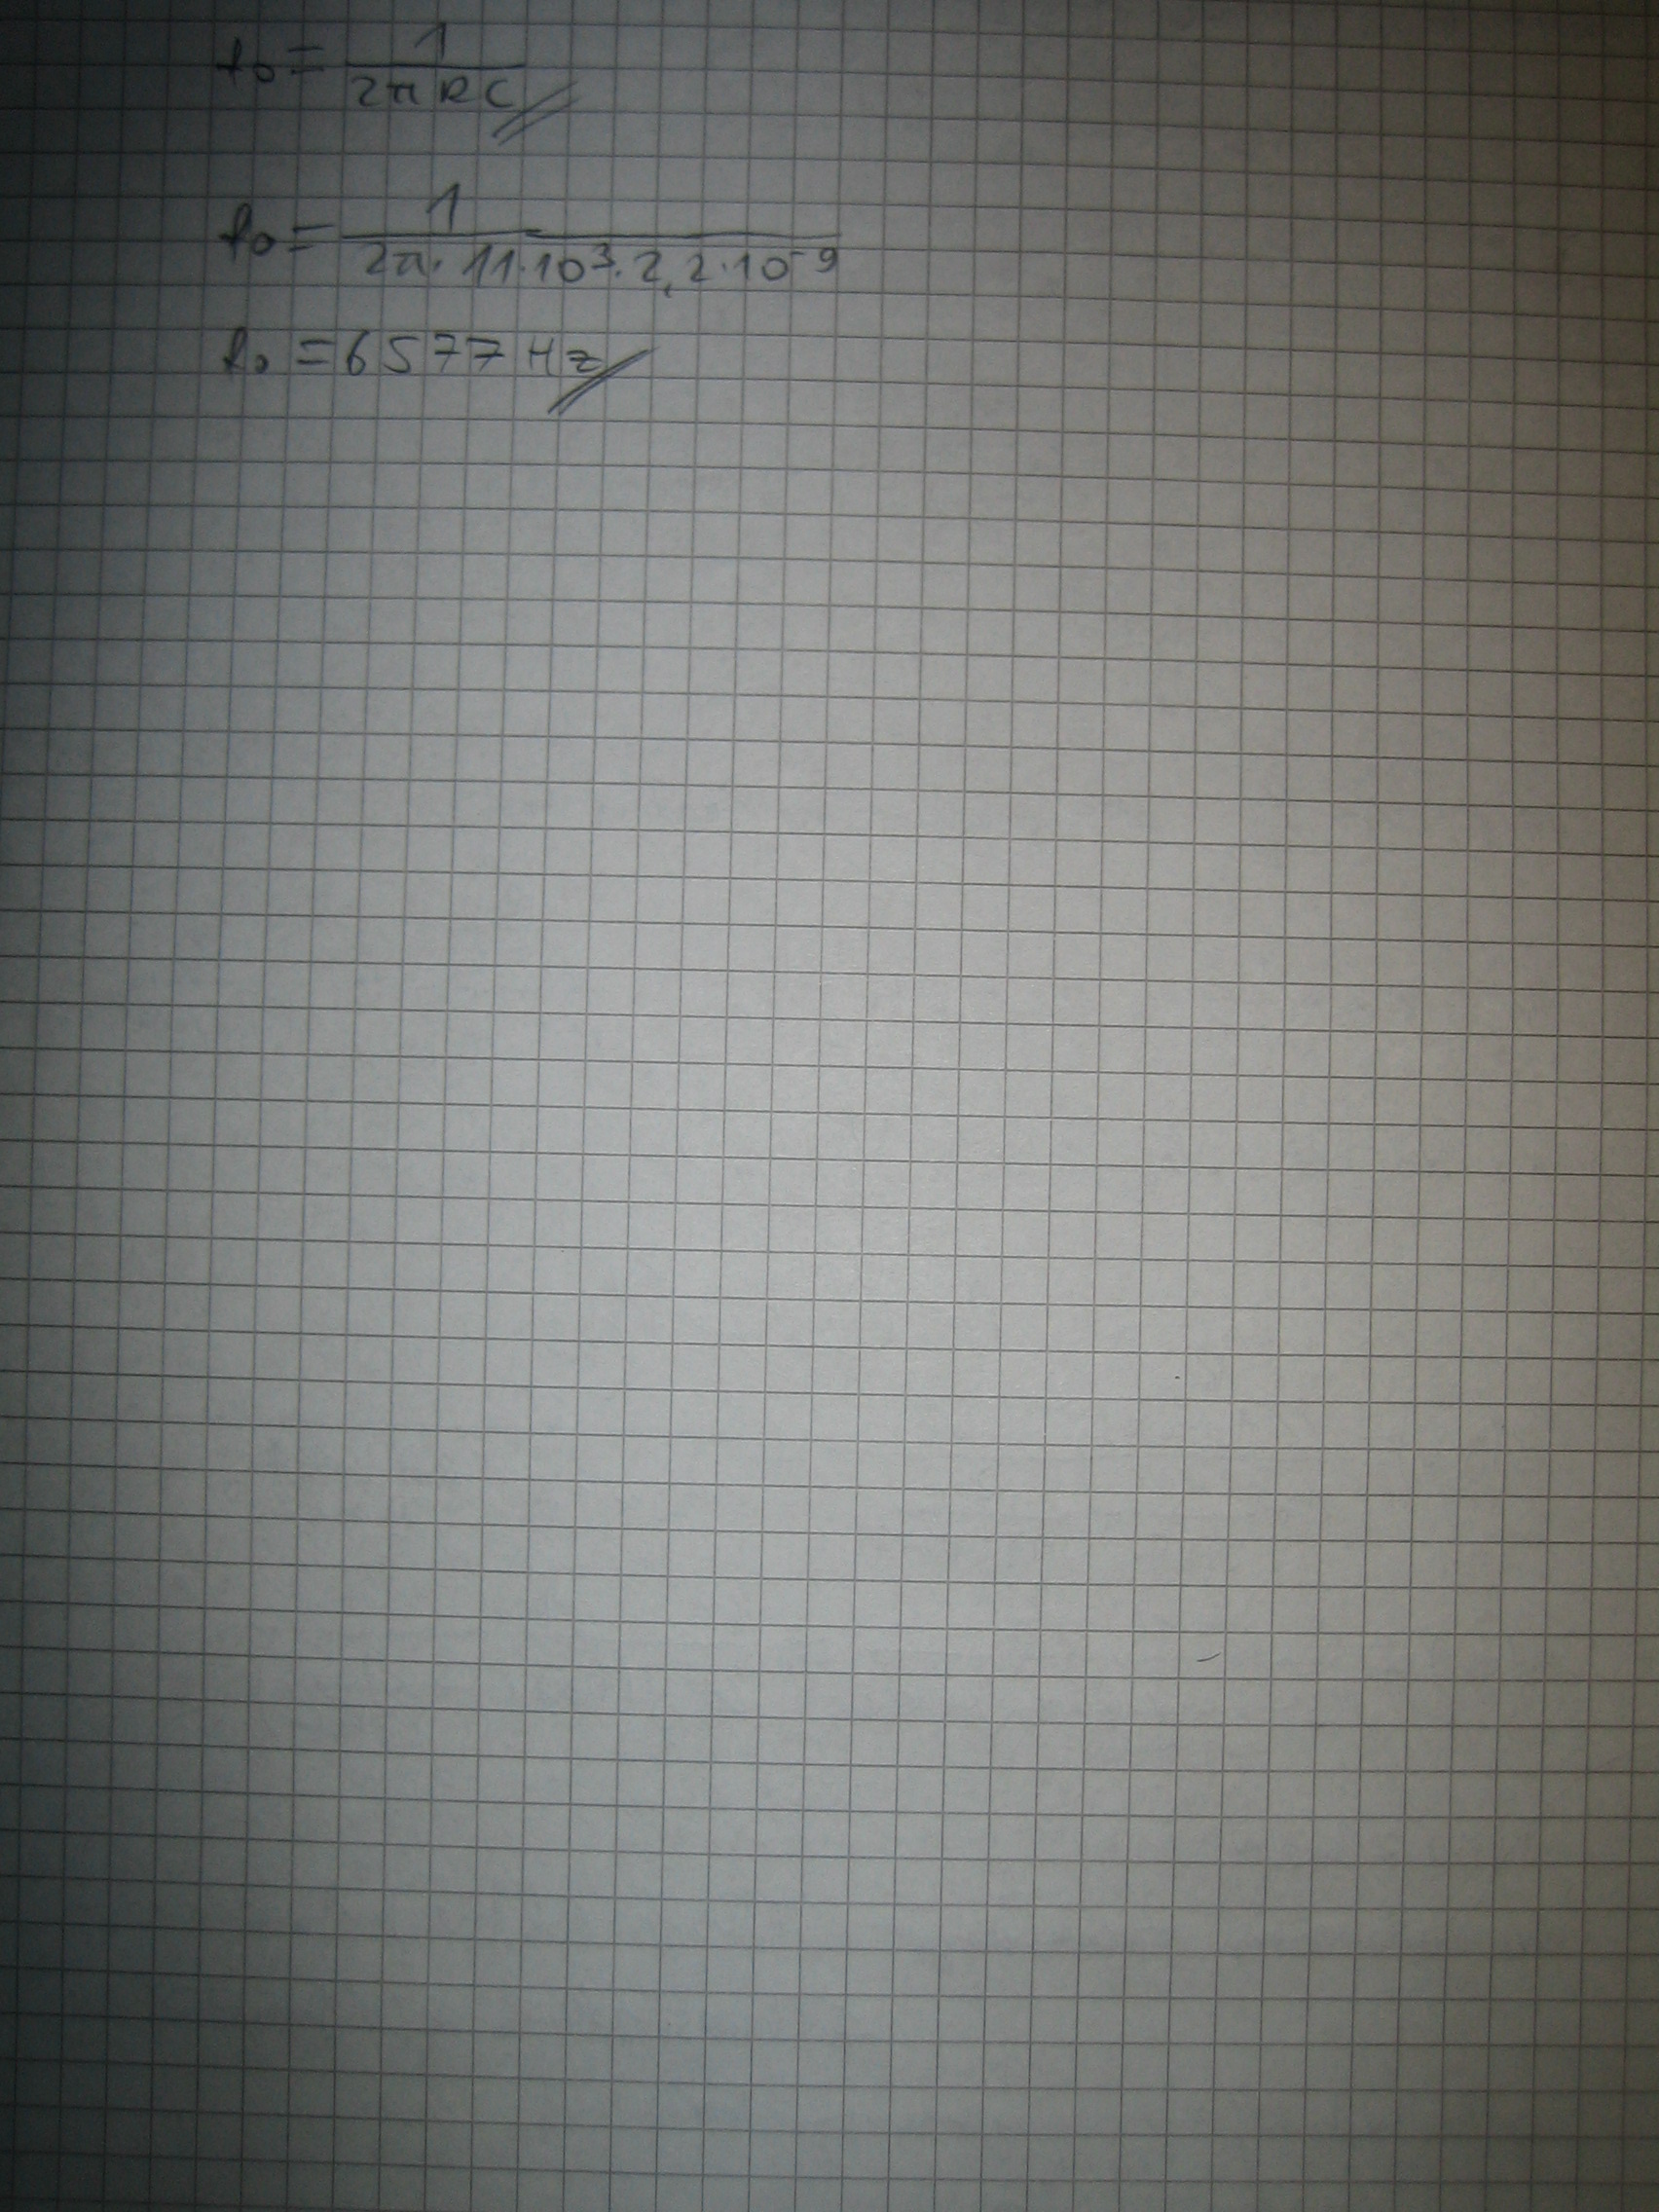 f₀ = 1 / 2πRC
f₀ = 1 / 2π·11·10³·2,2·10⁻⁹
f₀ = 6577 Hz